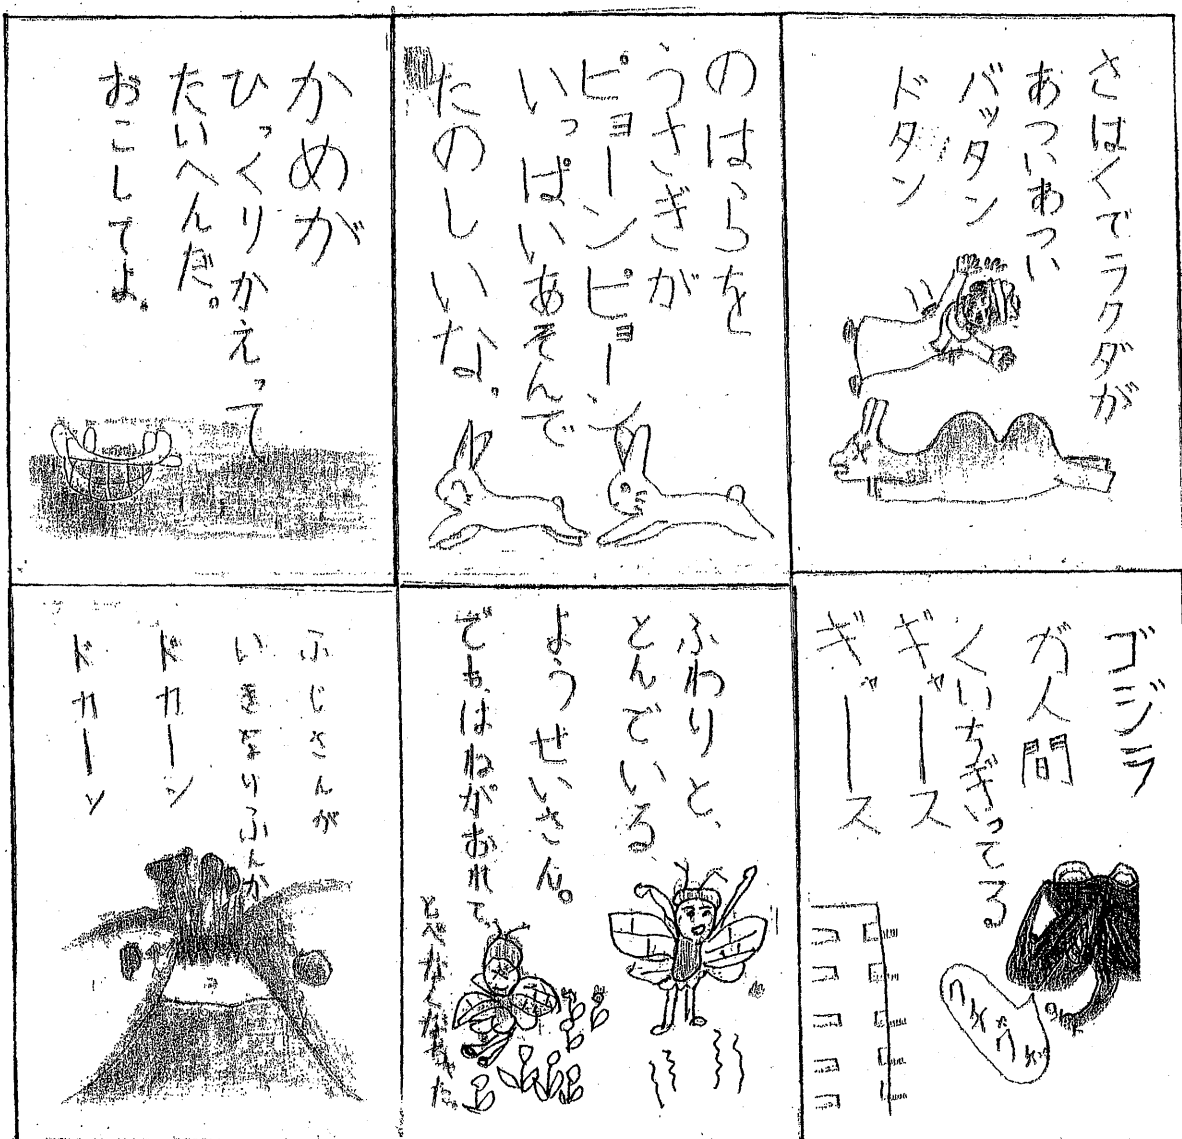 さはくでラクダが
あついあつい
バッタン
ドタン
のはらを
うさぎが
ピョーンピョーン
いっぱいあそんで
たのしいな。
かめが
ひっくりかえって
たいへんだ。
おこしてよ。
ゴジラ
ガ人間
くいちぎってる
ギャース
ギャース
ふわりと、
とんでいる
ようせいさん。
でも、はねがおれて、
とべなくなちゃた。
ふじさんが
いきなりふんか
ドカーン
ドカーン